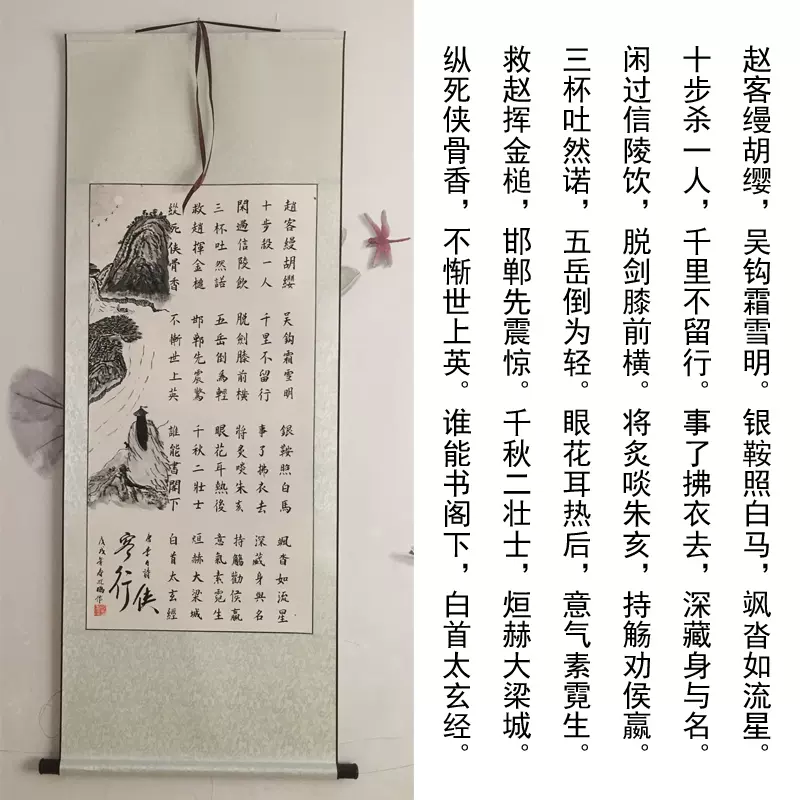 趙客縵胡纓 吴鈎霜雪明 銀鞍照白馬 颯沓如流星
十步殺一人 千里不留行 事了拂衣去 深藏身與名
閑過信陵飲 脱劍膝前横 將炙啖朱亥 持觴勸侯嬴
三杯吐然諾 五岳倒為輕 眼花耳熱後 意氣素霓生
救趙揮金槌 邯鄲先震驚 千秋二壯士 烜赫大梁城
縱死俠骨香 不慚世上英 誰能書閣下 白首太玄經
唐李白詩
俠客行
戊戌年春
赵客缦胡缨，吴钩霜雪明。银鞍照白马，飒沓如流星。
十步杀一人，千里不留行。事了拂衣去，深藏身与名。
闲过信陵饮，脱剑膝前横。将炙啖朱亥，持觞劝侯嬴。
三杯吐然诺，五岳倒为轻。眼花耳热后，意气素霓生。
救赵挥金槌，邯郸先震惊。千秋二壮士，烜赫大梁城。
纵死侠骨香，不惭世上英。谁能书阁下，白首太玄经。